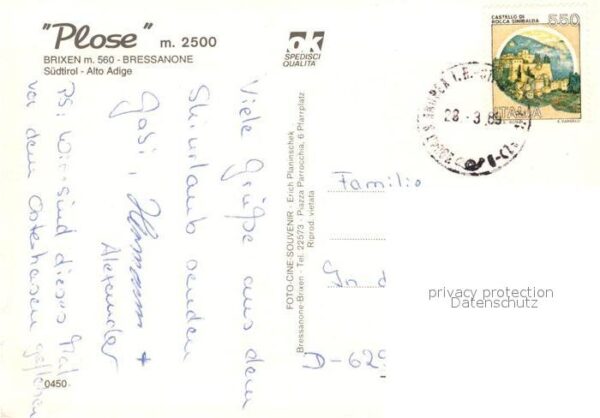 "Plose" m. 2500
BRIXEN m. 560 - BRESSANONE
Südtirol - Alto Adige
OK
SPEDISCI
QUALITÀ
CASTELLO DI
ROCCA SINIBALDA
550
ITALIA
28-3.89
Viele Grüße aus dem
Skiurlaub senden
Gabi, Hermann +
Alexander
PS: Wir sind dieses Mal
vor dem Osterhasen geflohen
FOTO-CINE-SOUVENIR - Erich Planinschek
Bressanone-Brixen - Tel. 22573 - Piazza Parrocchia, 6 Pfarrplatz
Riprod. vietata
Familie
In d
D-629
privacy protection
Datenschutz
0450